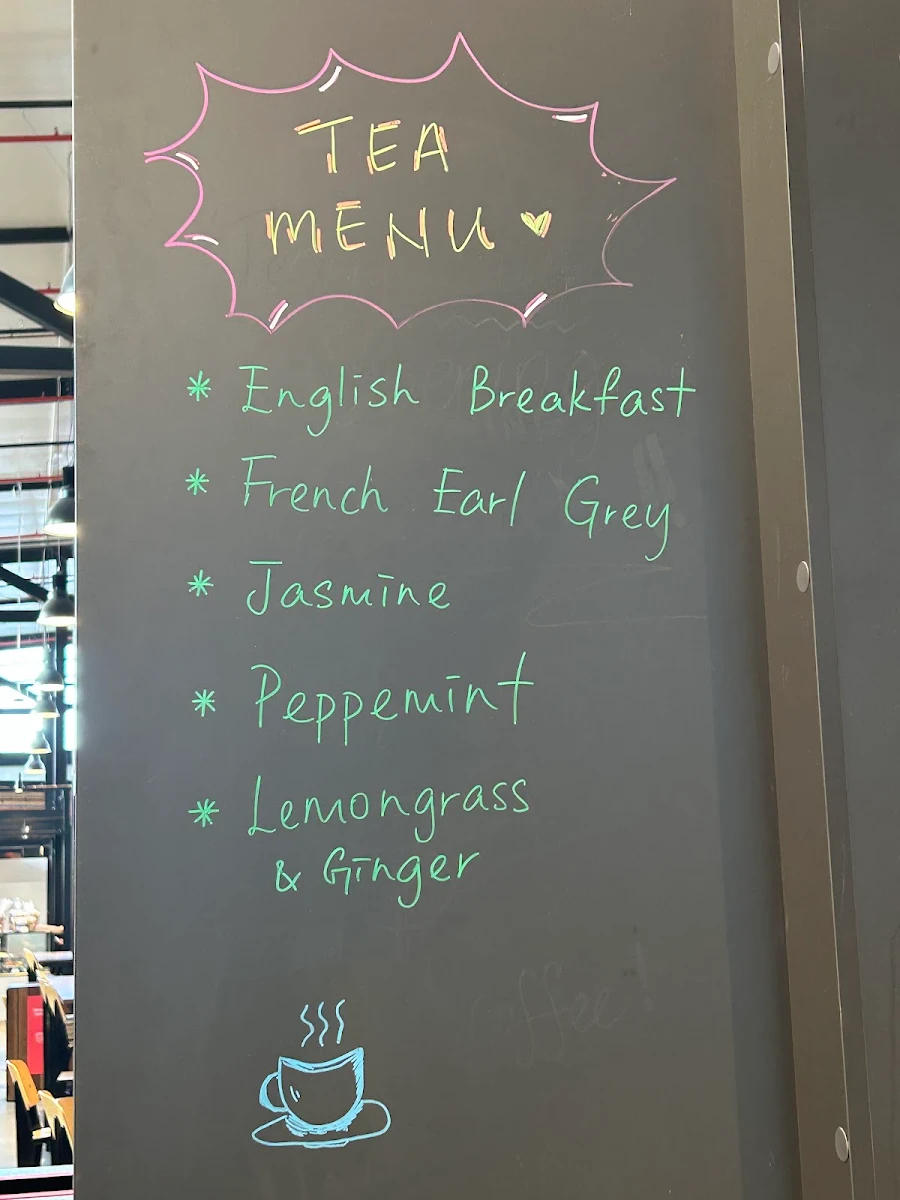 TEA
MENU
* English Breakfast
* French Earl Grey
* Jasmine
* Peppemint
* Lemongrass
& Ginger
ffee!